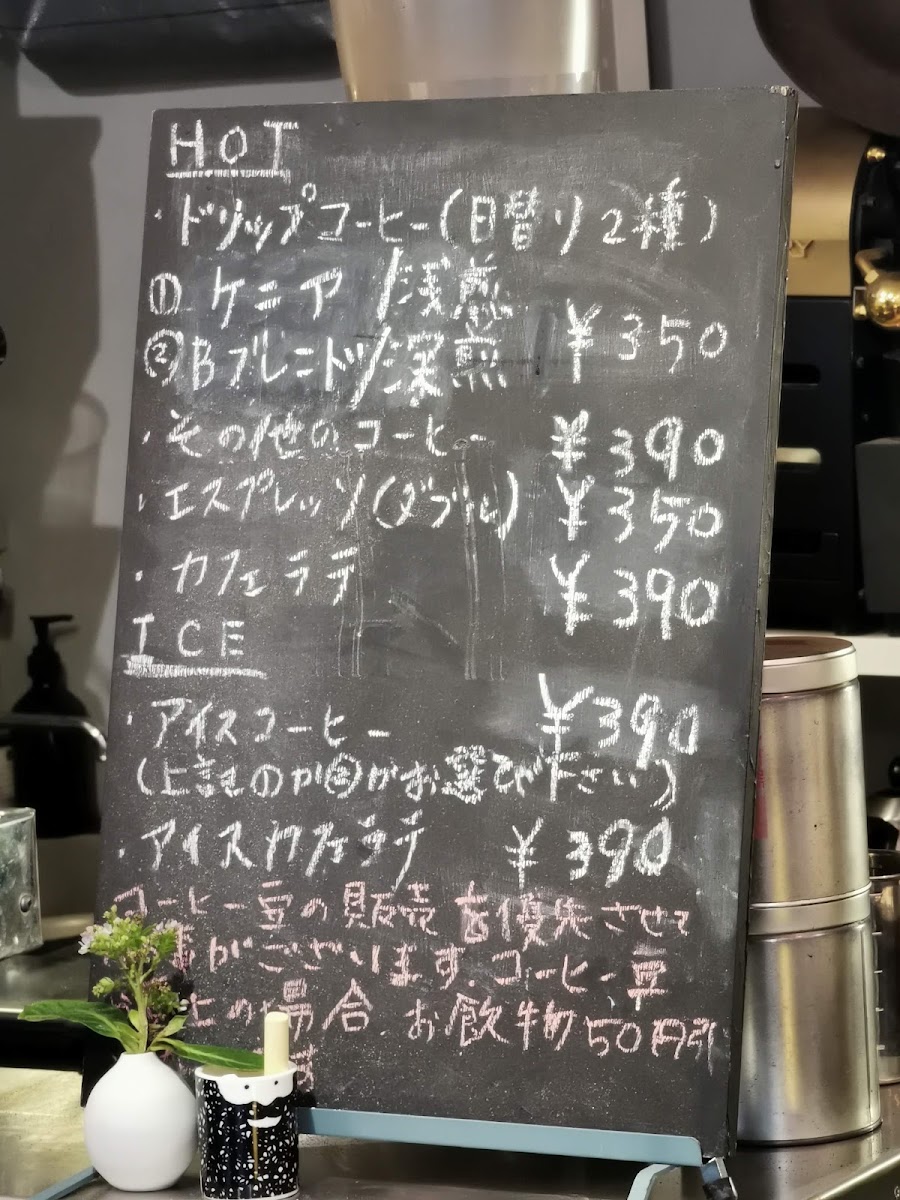 HOT
・ドリップコーヒー(日替り2種)
① ケニア/浅煎
②Bブレンド/深煎 ¥350
・その他のコーヒー ¥390
・エスプレッソ(ダブル) ¥350
・カフェラテ ¥390
ICE
・アイスコーヒー ¥390
(上記の①か②がお選び下さい)
・アイスカフェラテ ¥390
コーヒー豆の販売を優先させて
事がございます.コーヒー豆
上の場合 お飲物50円引
す